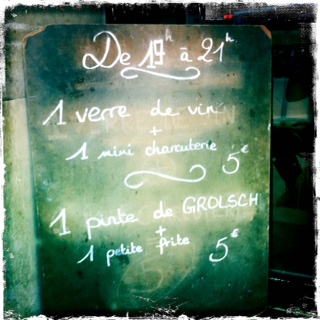 De 19h à 21h
1 verre de vin
+
1 mini charcuterie 5€
1 pinte de GROLSCH
+
1 petite frite 5€